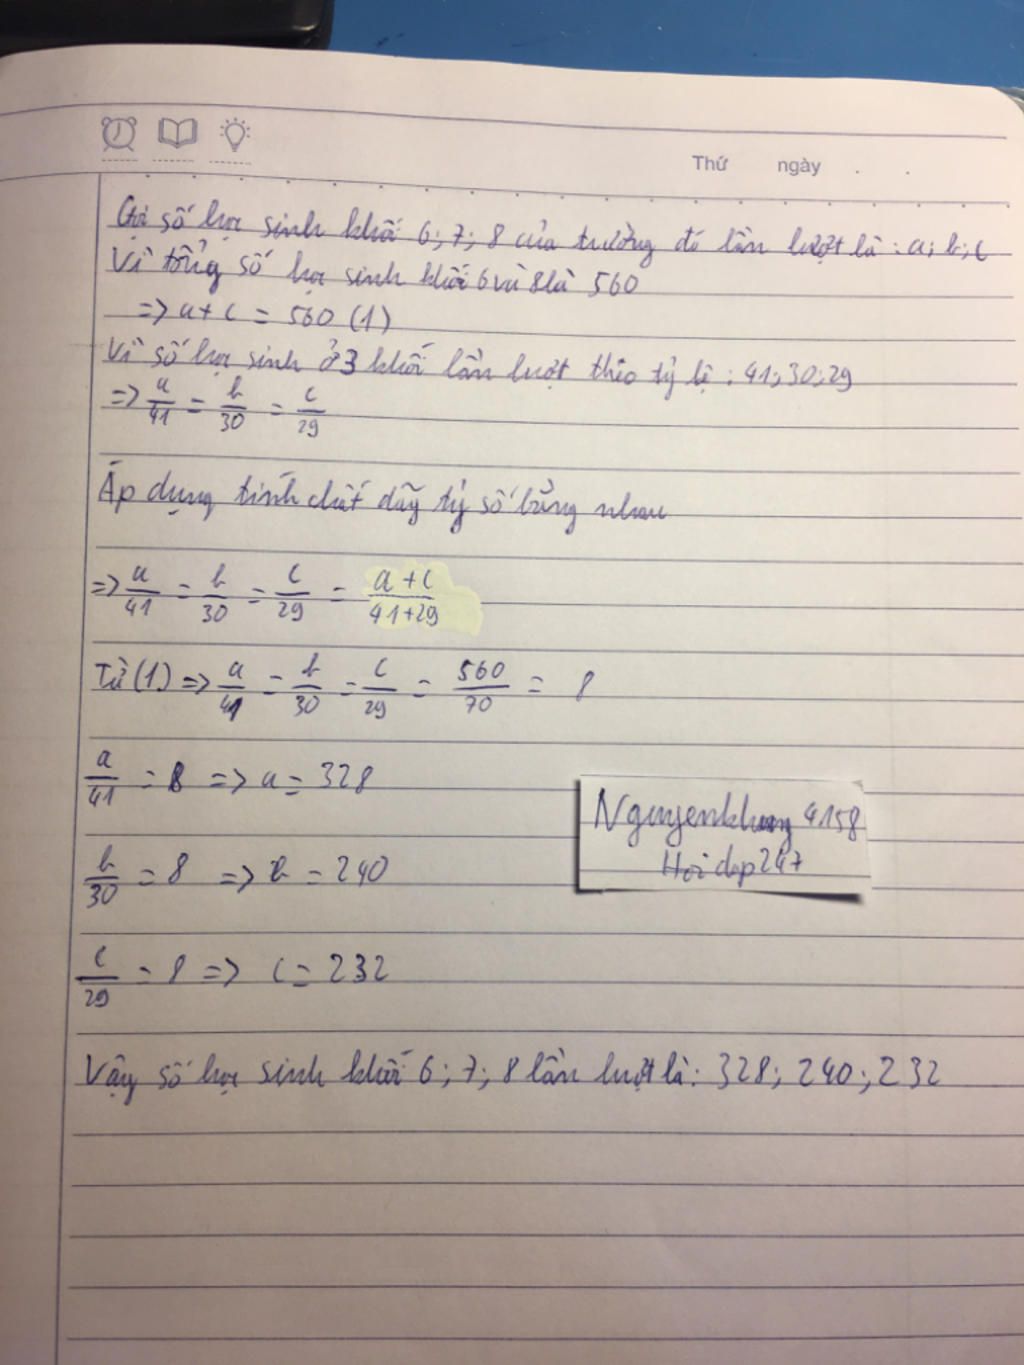 Thứ ngày
Gọi số học sinh khối 6; 7; 8 của trường đó lần lượt là: a; b; c
Vì tổng số học sinh khối 6 và 8 là 560
=> a + c = 560 (1)
Vì số học sinh ở 3 khối lần lượt theo tỷ lệ: 41; 30; 29
=> a/41 = b/30 = c/29
Áp dụng tính chất dãy tỷ số bằng nhau
=> a/41 = b/30 = c/29 = a + c/41+29
Từ (1) => a/41 = b/30 = c/29 = 560/70 = 8
a/41 = 8 => a = 328
Nguyenkhang4158
b/30 = 8 => b = 240
Hoidap247
c/29 = 8 => c = 232
Vậy số học sinh khối 6; 7; 8 lần lượt là: 328; 240; 232